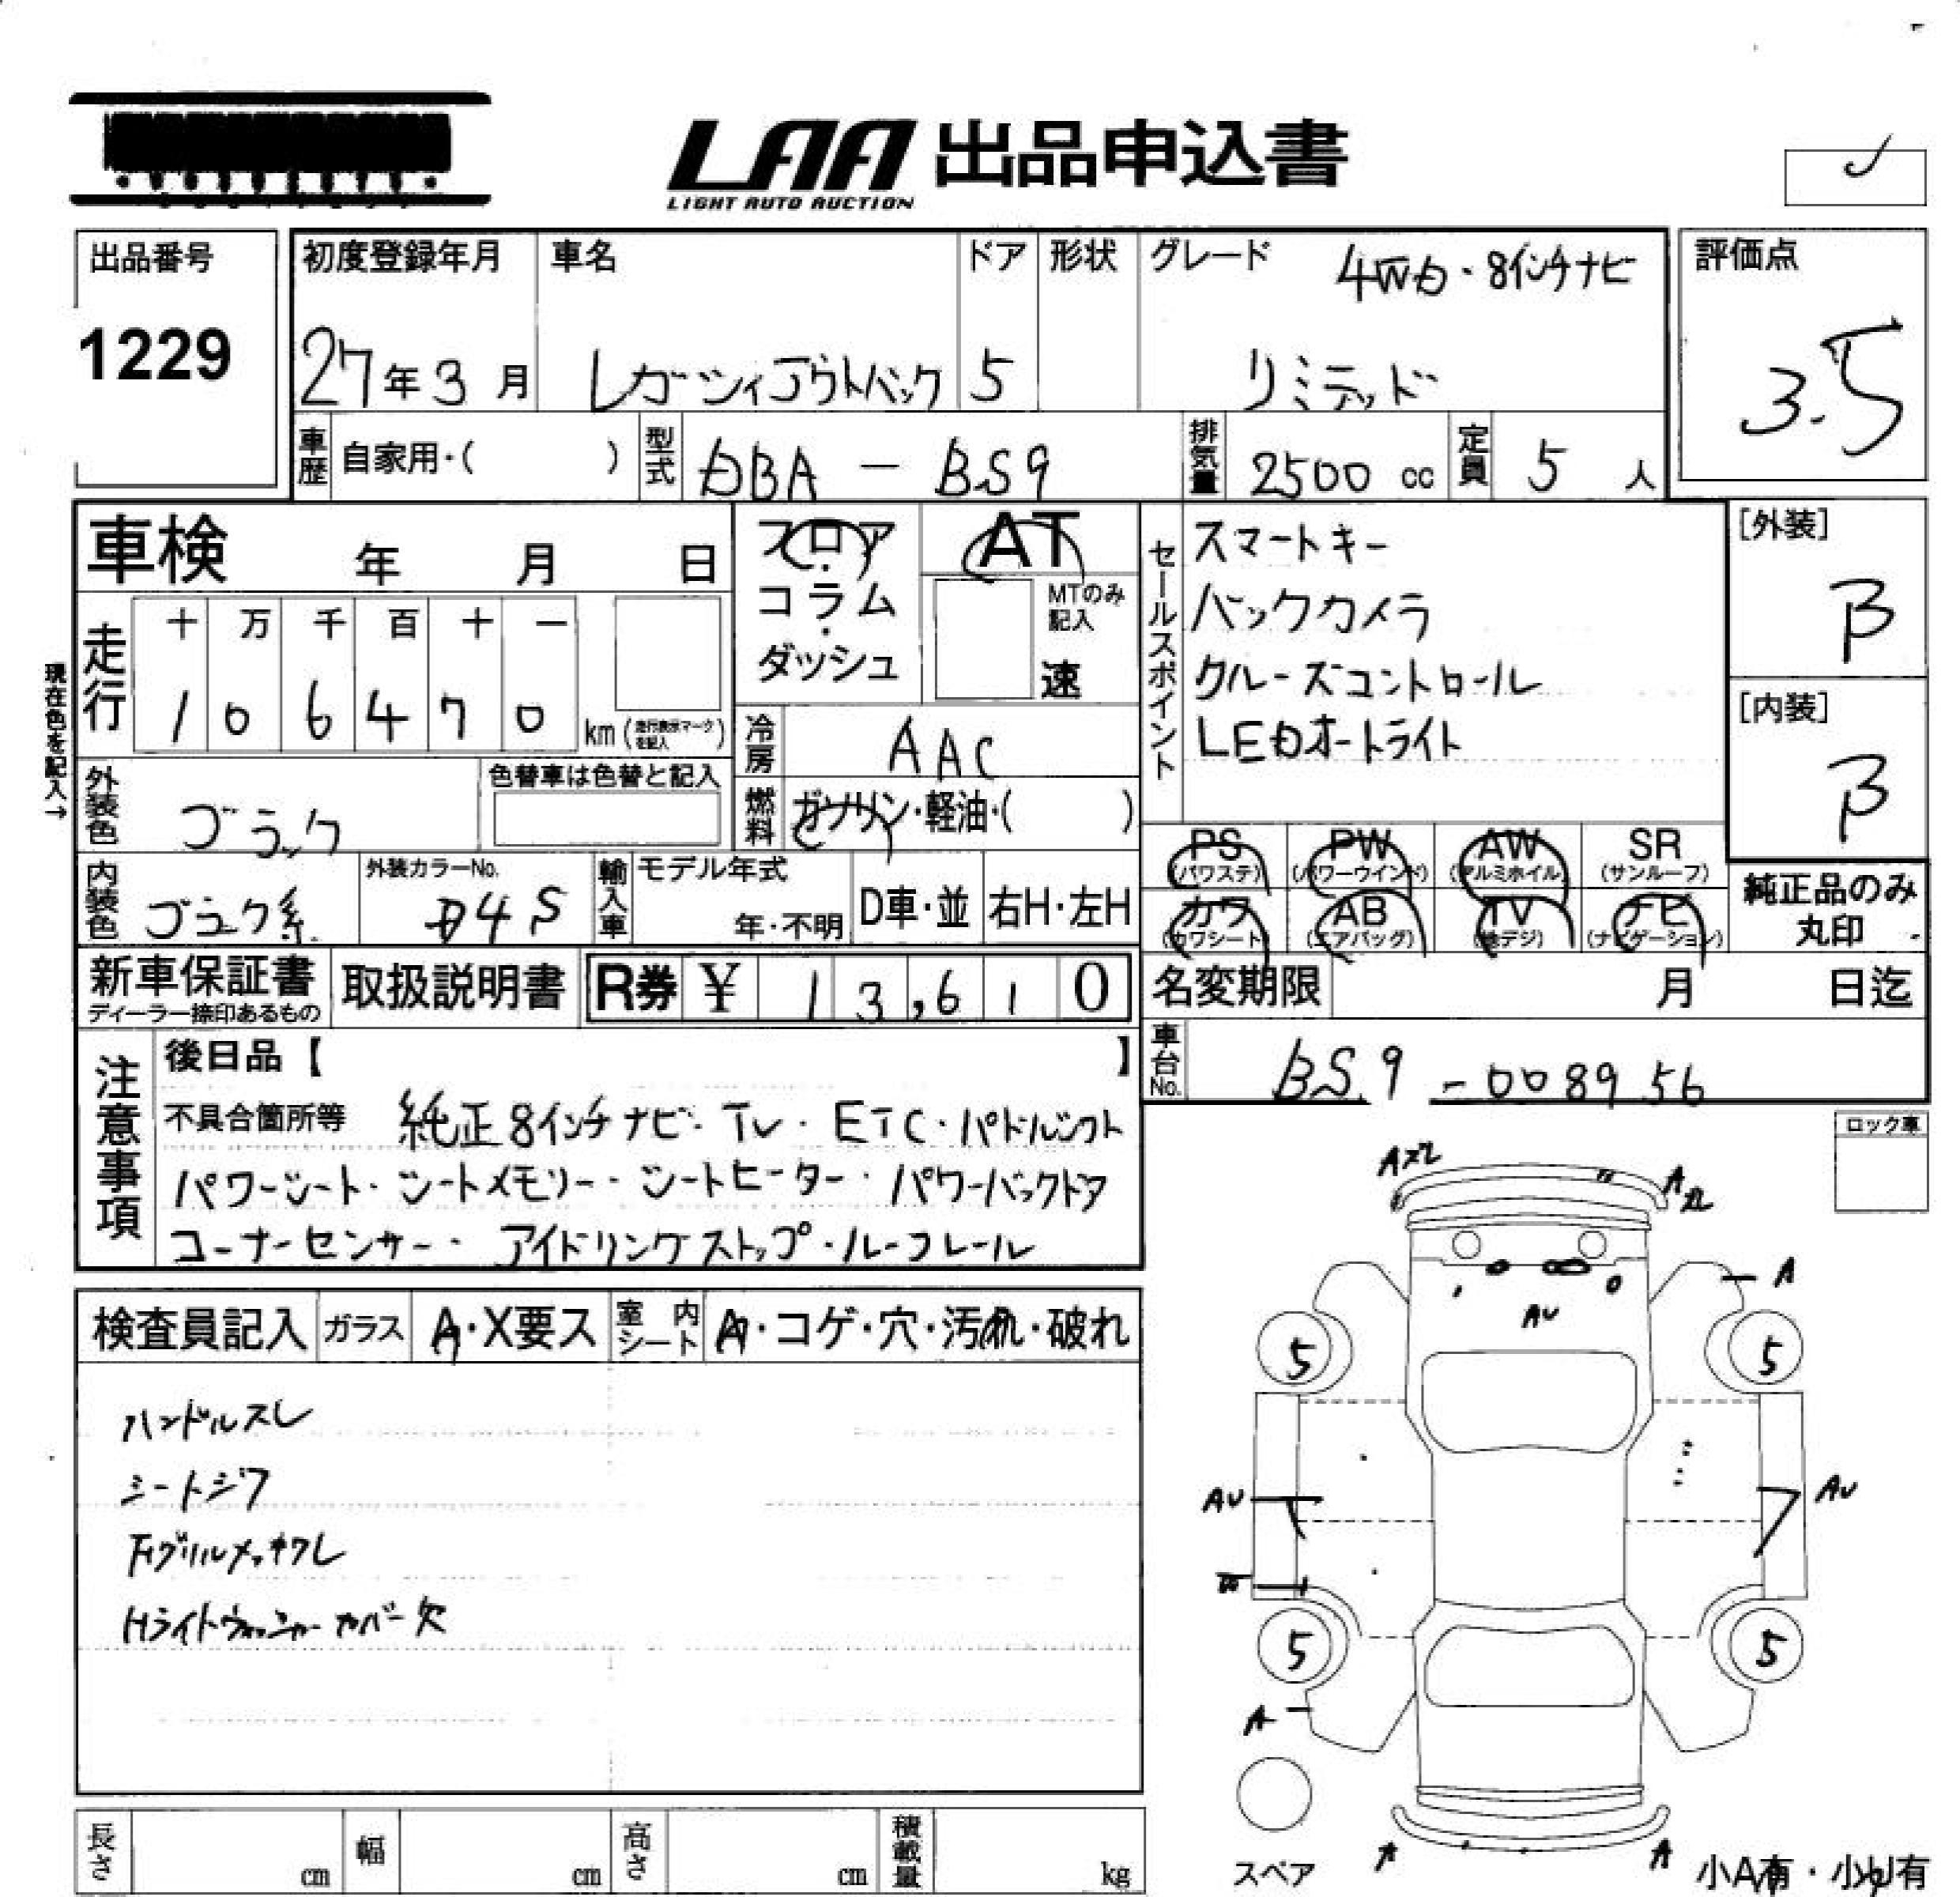 LAA 出品申込書
LIGHT AUTO AUCTION
出品番号
1229
初度登録年月
27年3月
車名
レガシィアウトバック
ドア
5
形状
グレード
4WD・8インチナビ
リミテッド
評価点
3.5
車歴 自家用・( )
型式 DBA - BS9
排気量 2500 cc
定員 5 人
車検 年 月 日
フロア・コラム・ダッシュ
AT
MTのみ記入
速
セールスポイント
スマートキー
バックカメラ
クルーズコントロール
LEDオートライト
[外装]
B
[内装]
B
現在色を記入→
走行 十 万 千 百 十 一
1 0 6 4 7 0 km (走行表示マークを記入)
冷房 AAC
燃料 ガソリン・軽油・( )
外装色 ブラック
色替車は色替と記入
内装色 ブラック系
外装カラーNo.
D4S
輸入車 モデル年式
年・不明
D車・並
右H・左H
PS (パワステ)
PW (パワーウインド)
AW (アルミホイル)
SR (サンルーフ)
カワ (カワシート)
AB (エアバッグ)
TV (地デジ)
ナビ (ナビゲーション)
純正品のみ
丸印
新車保証書
ディーラー捺印あるもの
取扱説明書
R券 ¥ 13,610
名変期限 月 日迄
車台No. BS9-008956
注意事項
後日品【 】
不具合箇所等 純正8インチナビ・TV・ETC・パドルシフト
パワーシート・シートメモリー・シートヒーター・パワーバックドア
コーナーセンサー・アイドリングストップ・ルーフレール
ロック車
検査員記入
ガラス A・X要ス
室内シート A・コゲ・穴・汚れ・破れ
ハンドルスレ
シートジワ
Fグリルメッキワレ
Hライトウォッシャーカバー欠
A
A
A
AU
5
5
AU
AU
5
5
A
A
A
スペア
小A有・小U有
長さ cm
幅 cm
高さ cm
積載量 kg